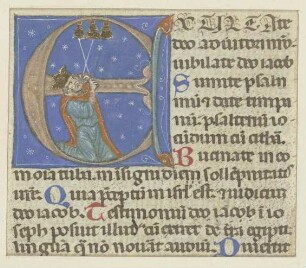 EXULTate
deo adiutori nr̄o
iubilate deo iacob
Sumite psalm
um & date timpa
num psalterium io
cundum cū cithā.
Bucinate in eo
menia tuba in insigni die sollempnitatis
Quia preceptum in isrl est & iudicium
deo iacob. Testimonium deo iacob ī io
seph posuit illud cū exiret de terra egipti
linguā quā nō nouerat audiuit. Diuertit